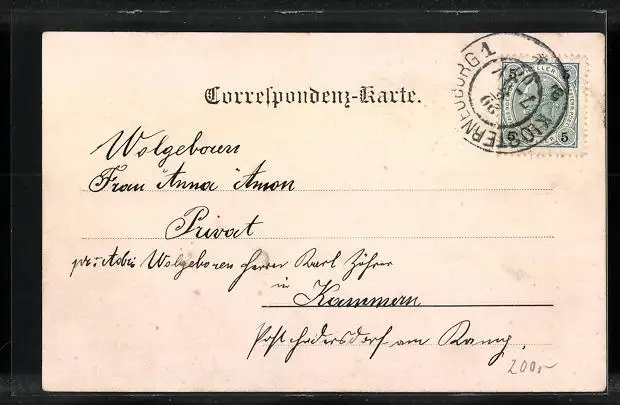 Correspondenz-Karte.
KLOSTERNEUBURG 1
HELLER
5 5
5 5
Wolgeboren
Frau Anna Amon
Privat
pr. Adr. Wolgeboren Herrn Karl Zöhrer
in
Kammern
Post Hadersdorf am Kamp.
200,-